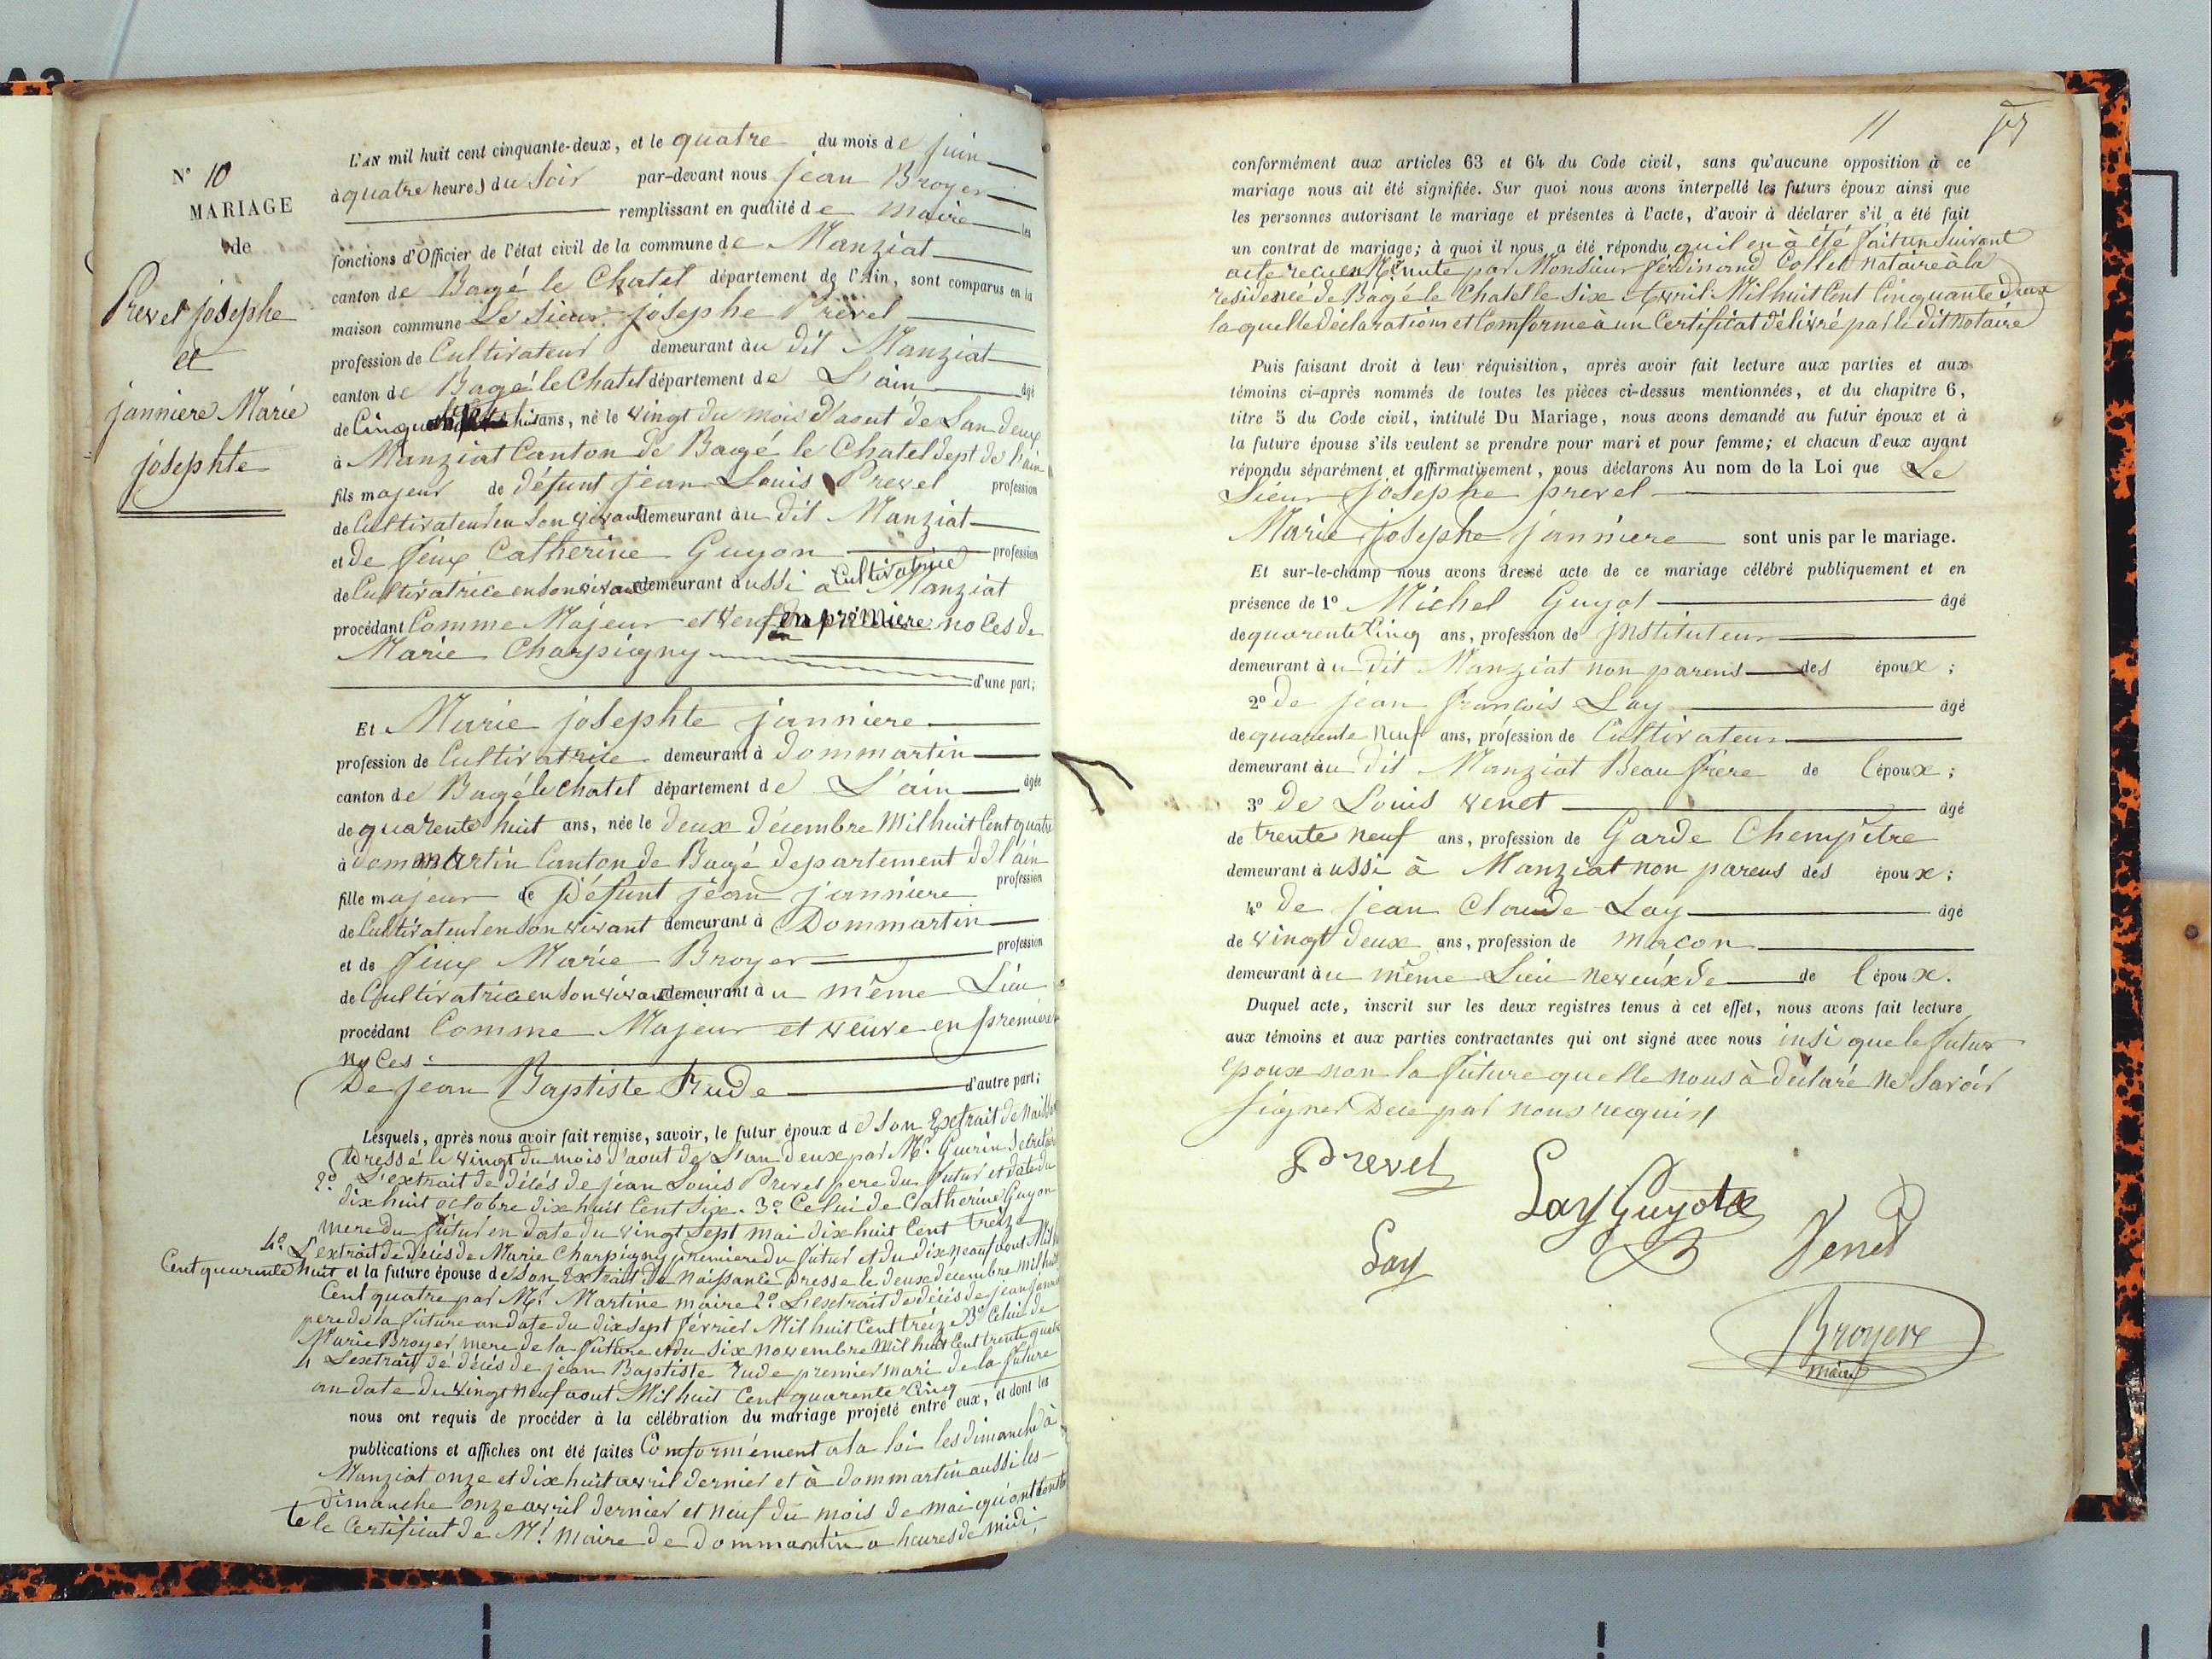 N° 10
MARIAGE
de
Prevel josephe
et
janniere Marie
josephte
L'AN mil huit cent cinquante-deux, et le quatre du mois de juin
à quatre heures du Soir par-devant nous jean Broyer
remplissant en qualité de maire les
fonctions d'Officier de l'état civil de la commune de Manziat
canton de Bagé le Chatel département de l'Ain, sont comparus en la
maison commune Le Sieur josephe Prevel
profession de Cultivateur demeurant àu dit Manziat
canton de Bagé le Chatel département de L'ain âgé
de Cinquante huit ans, né le vingt du mois d'aout de Lan deux
à Manziat Canton de Bagé le Chatel dept de l'ain
fils majeur de défunt jean Louis Prevel profession
de Cultivateur en Son vivant demeurant àu dit Manziat
et de feue Catherine Guyon profession
Cultivatrice
de Cultivatrice en Son vivant demeurant aussi a Manziat
procédant Comme Majeur et Veuf en premiere noces de
Marie Charpigny
d'une part;
Et Marie josephte janniere
profession de Cultivatrice demeurant à dommartin
canton de Bagé le Chatel département de L'ain âgée
de quarente huit ans, née le deux décembre Mil huit Cent quatre
à dommartin Canton de Bagé departement de l'ain
fille majeur de Défunt jean janniere profession
de Cultivateur en Son vivant demeurant à Dommartin
et de feue Marie Broyer profession
de Cultivatrice en Son vivant demeurant àu même Lieu
procédant Comme Majeur et veuve en premiere
noces
De jean Baptiste Rude d'autre part;
Lesquels, après nous avoir fait remise, savoir, le futur époux de Son Extrait de Naissance
Dressé le vingt du mois d'aout de L'an deux par Mr. Guerin Secretaire
2° L'extrait de décés de jean Louis Prevel pere du futur et date du
dix huit octobre dix huit Cent Six. 3° Celui de Catherine Guyon
mere du futur en date du vingt Sept mai dix huit Cent treize
4° L'extrait de décés de Marie Charpigny premiere du futur et du dix neuf aout Mil huit
Cent quarente huit et la future épouse de Son Extrait de Naissance Dresse le deux décembre Mil huit
Cent quatre par Mr. Martine maire 2° L'extrait de décés de jean janniere
pere de la future an date du dix Sept février Mil huit Cent treize 3° Celui de
Marie Broyer mere de la future et du Six novembre Mil huit Cent trente quatre
4 L'extrait de décés de jean Baptiste rude premier mari de la future
an date du vingt neuf aout Mil huit Cent quarente Cinq
nous ont requis de procéder à la célébration du mariage projeté entre eux, et dont les
publications et affiches ont été faites Conformément a la loi les dimanche à
Manziat onze et dix huit avril dernier et à dommartin aussi les
dimanche onze avril dernier et neuf du mois de mai qu'ont consta
te le Certificat de Mr. Maire de Dommartin a heures de midi
11
conformément aux articles 63 et 64 du Code civil, sans qu'aucune opposition à ce
mariage nous ait été signifiée. Sur quoi nous avons interpellé les futurs époux ainsi que
les personnes autorisant le mariage et présentes à l'acte, d'avoir à déclarer s'il a été fait
un contrat de mariage; à quoi il nous a été répondu qu'il en à été fait un Suivant
acte recu en Minute par Monsieur ferdinand Collet notaire à la
residence de Bagé le Chatel le Six Avril Mil huit Cent Cinquante deux
la quelle déclarations et Comforme à un Certificat délivré par le dit notaire
Puis faisant droit à leur réquisition, après avoir fait lecture aux parties et aux
témoins ci-après nommés de toutes les pièces ci-dessus mentionnées, et du chapitre 6,
titre 5 du Code civil, intitulé Du Mariage, nous avons demandé au futur époux et à
la future épouse s'ils veulent se prendre pour mari et pour femme; et chacun d'eux ayant
répondu séparément et affirmativement, nous déclarons Au nom de la Loi que Le
Sieur josephe prevel
Marie josephe janniere sont unis par le mariage.
Et sur-le-champ nous avons dressé acte de ce mariage célébré publiquement et en
présence de 1° Michel Guyot âgé
de quarente Cinq ans, profession de jnstituteur
demeurant àu dit Manziat non parens des époux;
2° de jean françois Lay âgé
de quarente neuf ans, profession de Cultivateur
demeurant àu dit Manziat Beau frere de l'époux;
3° de Louis venet âgé
de trente neuf ans, profession de Garde Chempêtre
demeurant àussi à Manziat non parens des époux;
4° de jean Claude Lay âgé
de vingt deux ans, profession de macon
demeurant àu même Lieu neveux de de l'époux.
Duquel acte, inscrit sur les deux registres tenus à cet effet, nous avons fait lecture
aux témoins et aux parties contractantes qui ont signé avec nous insi que le futur
epoux non la future quelle nous à déclaré ne Savoir
Signer Dece par nous requis
Prevel
Lay Guyot
Lay
Venet
Broyer
maire